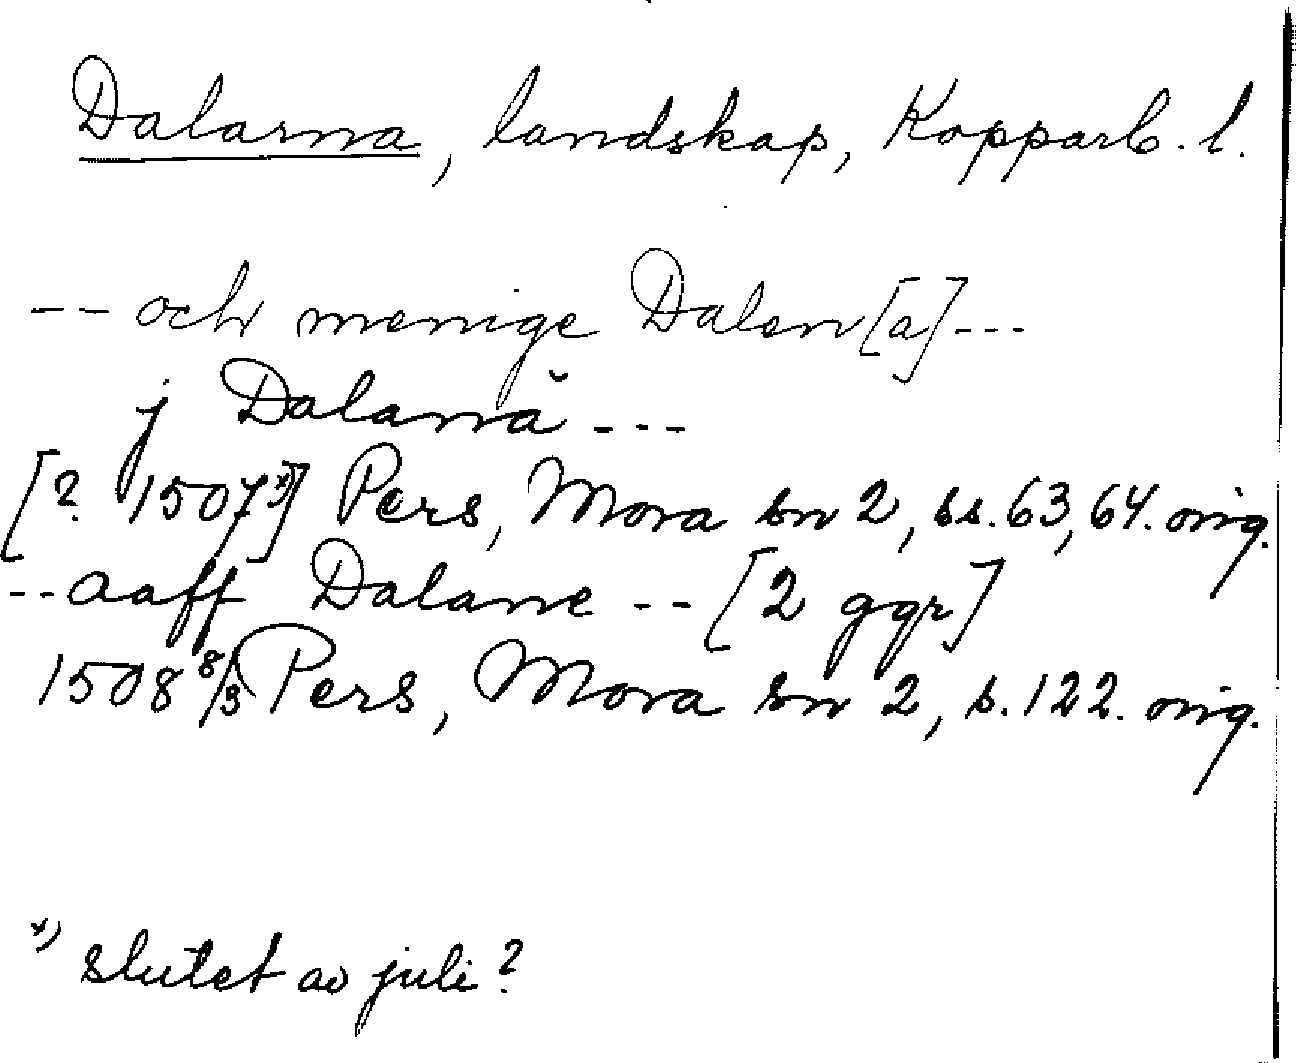 Dalarna, landskap, Kopparb. l.
-- och menige Dalen[a] ---
j Dalană ---
[? 1507 x)] Pers, Mora sn 2, ss. 63, 64. orig.
-- aaff Dalane -- [2 ggr]
1508 8/3 Pers, Mora sn 2, s. 122. orig.
x) slutet av juli?